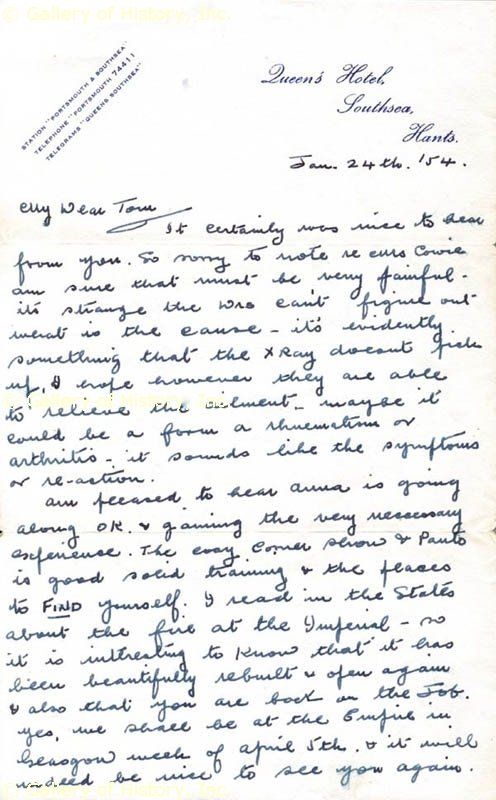 © Gallery of History, Inc.
STATION "PORTSMOUTH & SOUTHSEA"
TELEPHONE "PORTSMOUTH 74411"
TELEGRAMS "QUEENS SOUTHSEA"
Queen's Hotel,
Southsea,
Hants.
Jan. 24th. '54.
My Dear Tom
It certainly was nice to hear
from you. So sorry to note re Mrs Cowie
am sure that must be very painful -
its strange the Drs can't figure out
what is the cause - it's evidently
something that the X Ray doesnt pick
up, I hope however they are able
© Gallery of History, Inc.
to relieve the ailment - maybe it
could be a form a rhuematism or
arthritis - it sounds like the symptoms
or re-action.
am pleased to hear Anna is going
along OK. & gaining the very neccessary
experience. The cosy Corner show & Panto
is good solid training & the places
to FIND yourself. I read in the States
about the fire at the Imperial - so
it is intresting to know that it has
been beautifully rebuilt & open again
& also that you are back on the Job.
yes, we shall be at the Empire in
Glasgow week of April 5th. & it will
indeed be nice to see you again.
© Gallery of History, Inc.